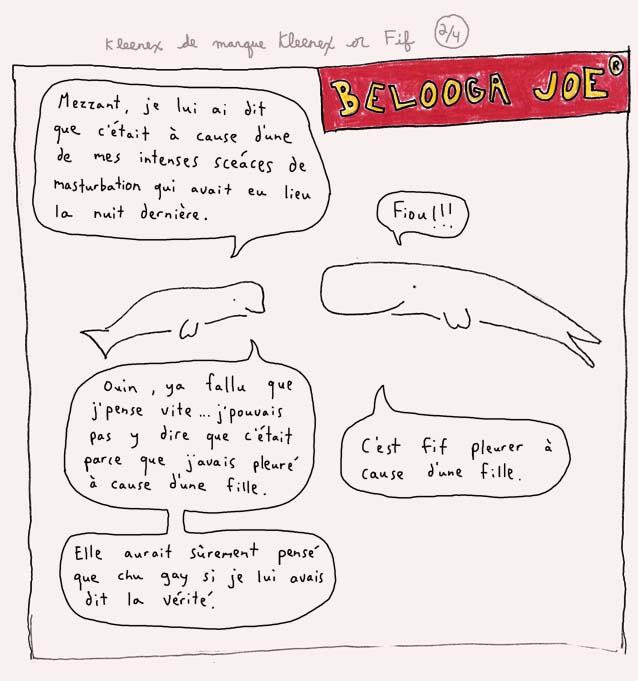 Kleenex de marque Kleenex or Fif 2/4
BELOOGA JOE®
Mezzant, je lui ai dit
que c'était à cause d'une
de mes intenses sceáces de
masturbation qui avait eu lieu
la nuit dernière.
Fiou!!!
Ouin, ya fallu que
j'pense vite... j'pouvais
pas y dire que c'était
parce que j'avais pleuré
à cause d'une fille.
C'est fif pleurer à
cause d'une fille.
Elle aurait sûrement pensé
que chu gay si je lui avais
dit la vérité.